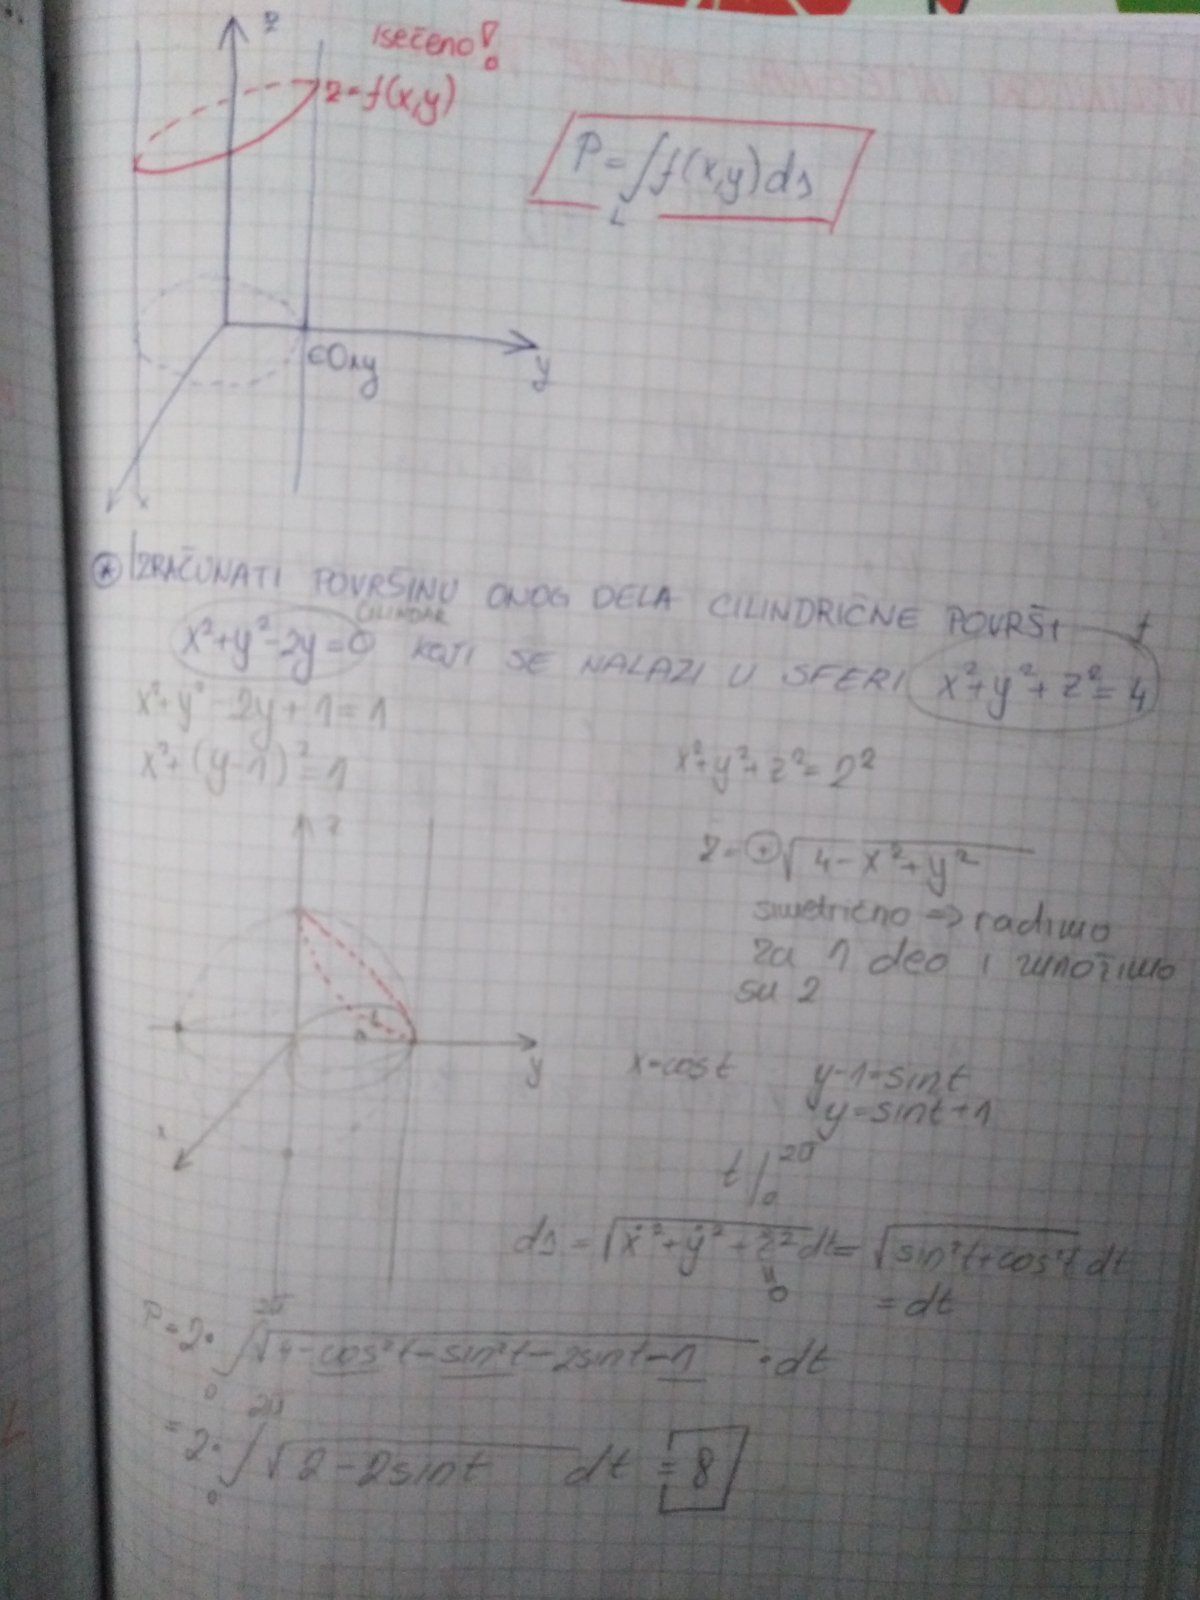 z
isečeno!
z=f(x,y)
P=∫f(x,y)ds
L
∈Oxy
y
x
⊛ IZRAČUNATI POVRŠINU ONOG DELA CILINDRIČNE POVRŠI
CILINDAR
x²+y²-2y=0 KOJI SE NALAZI U SFERI x²+y²+z²=4
x²+y²-2y+1=1
x²+(y-1)²=1
x²+y²+z²=2²
z
z=⊕√4-x²+y²
simetrično => radimo
za 1 deo i množimo
sa 2
y
x
x=cost y-1=sint
y=sint+1
t|₀^2π
ds=√ẋ²+ẏ²+ż² dt=√sin²t+cos²t dt
0
=dt
P=2·∫₀^2π √4-cos²t-sin²t-2sint-1 ·dt
=2·∫₀^2π √2-2sint dt =8